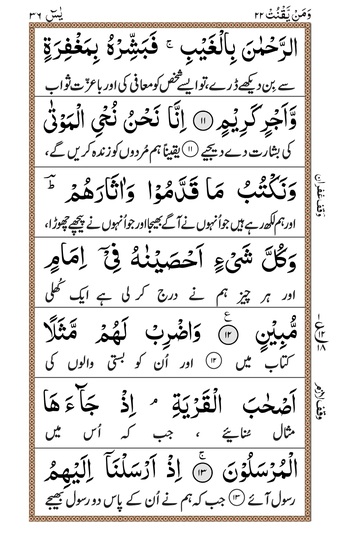 وَمَنْ يَّقْنُتْ ٢٢
يٰسٓ ٣٦
الرَّحْمٰنَ بِالْغَيْبِ ۚ فَبَشِّرْهُ بِمَغْفِرَةٍ
سے بِن دیکھے ڈرے، تو ایسے شخص کو معافی کی اور باعزّت ثواب
وَّاَجْرٍ كَرِيْمٍ ۝۱۱ اِنَّا نَحْنُ نُحْيِ الْمَوْتٰى
کی بشارت دے دیجیے ۝۱۱ یقیناً ہم مُردوں کو زندہ کریں گے،
وَنَكْتُبُ مَا قَدَّمُوْا وَاٰثَارَهُمْ ؕ
اور ہم لکھ رہے ہیں جو اُنہوں نے آگے بھیجا اور جو اُنہوں نے پیچھے چھوڑا،
وَكُلَّ شَیْءٍ اَحْصَيْنٰهُ فِيْۤ اِمَامٍ
اور ہر چیز ہم نے درج کر لی ہے ایک کُھلی
مُّبِيْنٍ ۝۱۲ وَاضْرِبْ لَهُمْ مَّثَلًا
کتاب میں ۝۱۲ اور اُن کو بستی والوں کی
اَصْحٰبَ الْقَرْيَةِ ۘ اِذْ جَآءَهَا
مثال سُنائیے ، جب کہ اُس میں
الْمُرْسَلُوْنَ ۝۱۳ اِذْ اَرْسَلْنَاۤ اِلَيْهِمُ
رسول آئے ۝۱۳ جب کہ ہم نے اُن کے پاس دو رسول بھیجے
وقف غفران
١٢
١٨
وقف لازم